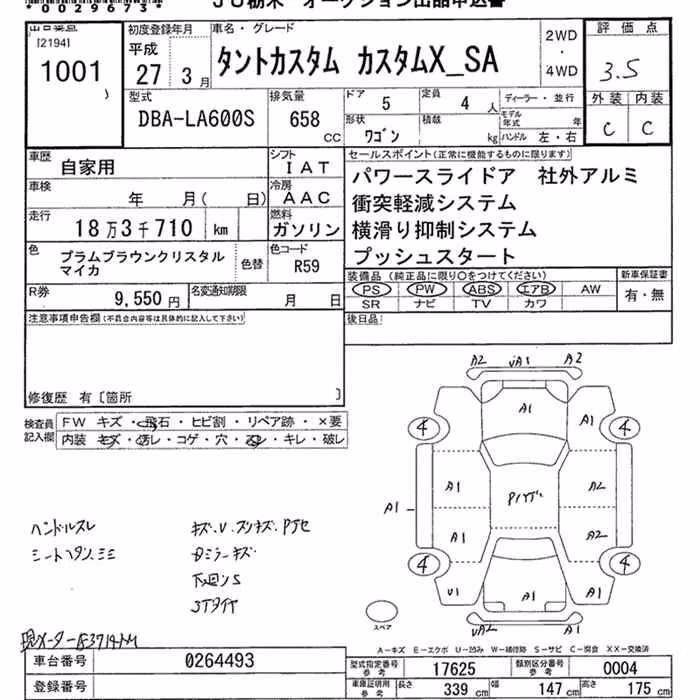 *0029673*
JU栃木 オークション出品申込書
出品番号
[2194]
1001
初度登録年月
平成
27 3月
車名・グレード
タントカスタム カスタムX_SA
2WD
・
4WD
評価点
3.5
外装 内装
C C
型式
DBA-LA600S
排気量
658
CC
ドア 5
定員 4 人
ディーラー・並行
形状 ワゴン
積載 kg
モデル年式 年
ハンドル 左・右
車歴 自家用
シフト IAT
車検 年 月( 日)
冷房 AAC
走行 18万3千710 km
燃料 ガソリン
色 プラムブラウンクリスタルマイカ
色替
色コード R59
R券 9,550円
名変通知期限 月 日
セールスポイント(正常に機能するものに限ります)
パワースライドア 社外アルミ
衝突軽減システム
横滑り抑制システム
プッシュスタート
装備品 (純正品に限り○をつけてください)
PS PW ABS エアB AW
SR ナビ TV カワ
新車保証書
有・無
後日品
注意事項申告欄(不具合内容等は具体的に記入して下さい)
修復歴 有〔箇所 〕
検査員記入欄
FW キズ・飛石・ヒビ割・リペア跡・×要
内装 キズ・汚レ・コゲ・穴・ネジ・キレ・破レ
A2 UA1 A2
A1
A1
4 4
A1 A2
A1
A1 A2
4 4
U1 A1
A1
UA2 A1
スペア
ハンドルスレ
下回りS
3Tタイヤ
A-キズ E-エクボ U-凹み W-補修跡 S-サビ C-腐食 XX-交換済
車台番号 0264493
登録番号
型式指定番号 参考 17625
類別区分番号 参考 0004
車庫証明用 参考 長さ 339 cm 幅 147 cm 高さ 175 cm